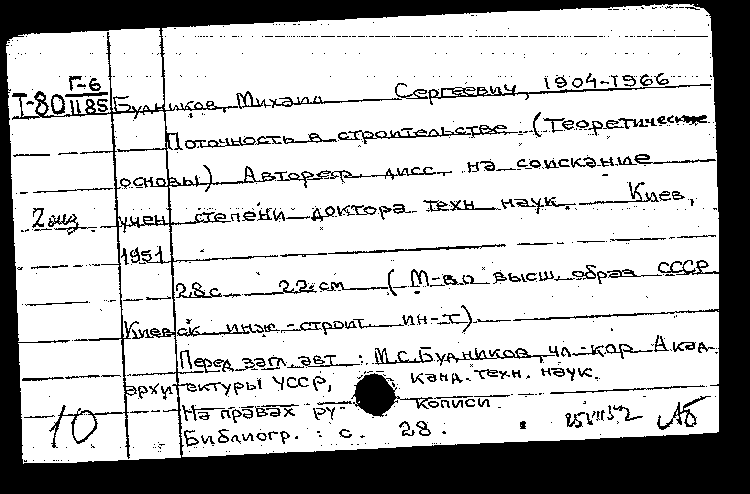 Г-6
Т-80 1185 Будников, Михаил Сергеевич, 1904-1966
Поточность в строительстве (Теоретические
основы) Автореф. дисс. на соискание
2 экз учен степени доктора техн наук. Киев,
1951
28 с 22 см (М-во высш. образ СССР
Киевск инж.-строит. ин-т).
Перед загл. авт : М.С. Будников, чл.-кор Акад.
архитектуры УССР, канд. техн. наук.
На правах рукописи
10 Библиогр. : с. 28.